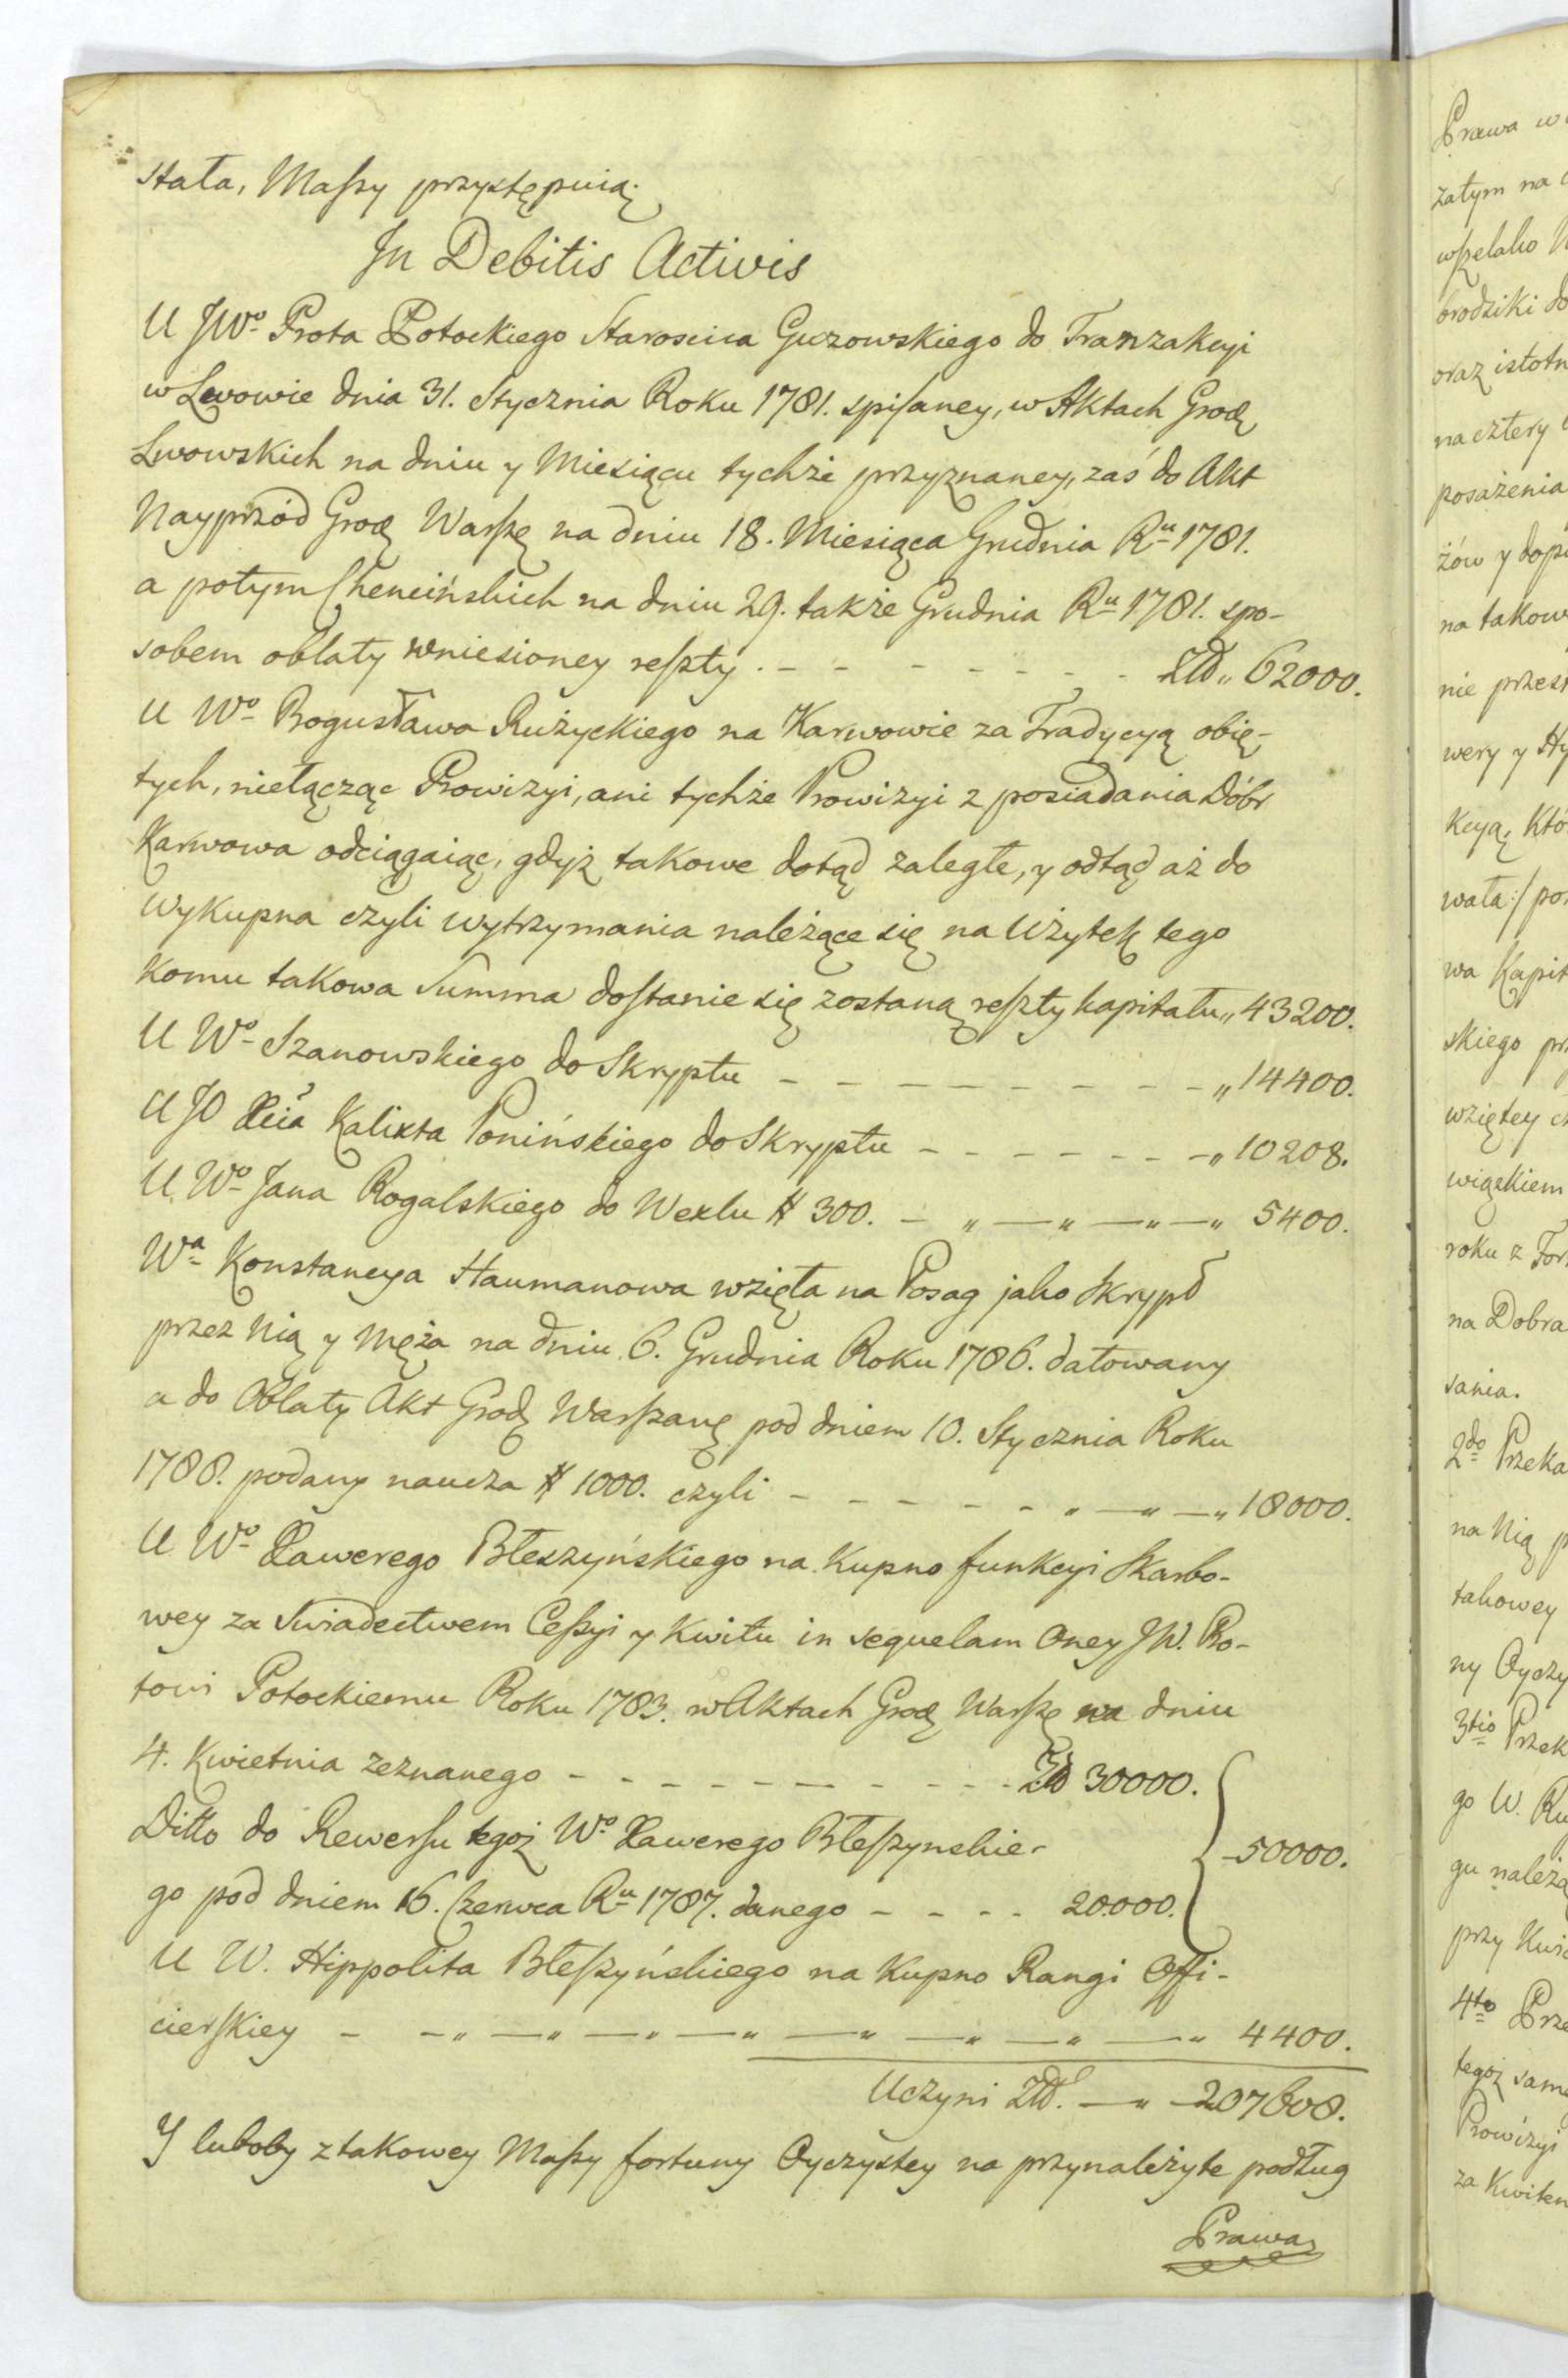 stała, Maſsy przystępuią.
In Debitis Activis
U JWo Prota Potockiego Starosica Guzowskiego do Tranzakcyi
w Lwowie dnia 31. Stycznia Roku 1781. spiſaney, w Aktach Grodz
Lwowskich na dniu y Miesiącu tychże przyznaney, zaś do Akt
Nayprzód Grodz Warſz na dniu 18. Miesiąca Grudnia Ru 1781.
a potym Chencińskich na dniu 29. także Grudnia Ru 1781. spo-
sobem oblaty wniesioney reſzty. - - - - - - - Złł „ 62000.
U Wo Bogusława Rużyckiego na Karwowie za Tradycyą obię-
tych, niełącząc Prowizyi, ani tychże Prowizyi z posiadania Dóbr
Karwowa odciągaiąc, gdyż takowe dotąd zaległe, y odtąd aż do
wykupna czyli wytrzymania należące się na Użytek tego
komu takowa Summa doſtanie się zostaną reſzty kapitału „ 43200.
U Wo Szanowskiego do Skryptu - - - - - - - - - „ 14400.
U JO Xcia Kalixta Ponińskiego do Skryptu - - - - - - - „ 10208.
U Wo Jana Rogalskiego do Wexlu # 300. - „ — „ — „ — „ 5400.
Wa Konstancya Haumanowa wzięła na Posag jako Skrypt
przez Nią y Męża na dniu 6. Grudnia Roku 1786. datowany
a do Oblaty Akt Grodz Warſzaw pod dniem 10. Stycznia Roku
1788. podany naucza # 1000. czyli - - - - - - „ — „ — „ 18000.
U Wo Xawerego Błeszyńskiego na Kupno funkcyi Skarbo-
wey za Swiadectwem Ceſsyi y Kwitu in sequelam Oney JW. Pro-
towi Potockiemu Roku 1783. w Aktach Grodz Warſz na dniu
4. Kwietnia zeznanego - - - - - - - - - - Zł 30000.
Ditto do Rewerſu tegoż Wo Xawerego Błeſzynskie-
50000.
go pod dniem 16. Czerwca Ru 1787. danego - - - - 20.000.
U W. Hippolita Błeſzyńskiego na Kupno Rangi Offi-
cierſkiey - - „ — „ — „ — „ — „ — „ — „ — „ 4400.
Uczyni Złł. — „ — 207608.
Y luboby z takowey Maſsy fortuny Oyczystey na przynależyte podług
Prawa
Prawa
zatym na
wſzelako
brodziki do
oraz istotn
na cztery
posażenia
żów y dop
na takow
nie przes
wery y Hy
kcyą, Któ
wała:/ po
wa Kapit
skiego pr
wziętey
więzkiem
roku z For
na Dobra
sania.
2do Przeka
na Nią p
takowey
ny Oyczy
3tio Przek
go W. Ru
gu należą
przy Kwi
4to Prze
tegoż sam
Prowizyi
za Kwitem